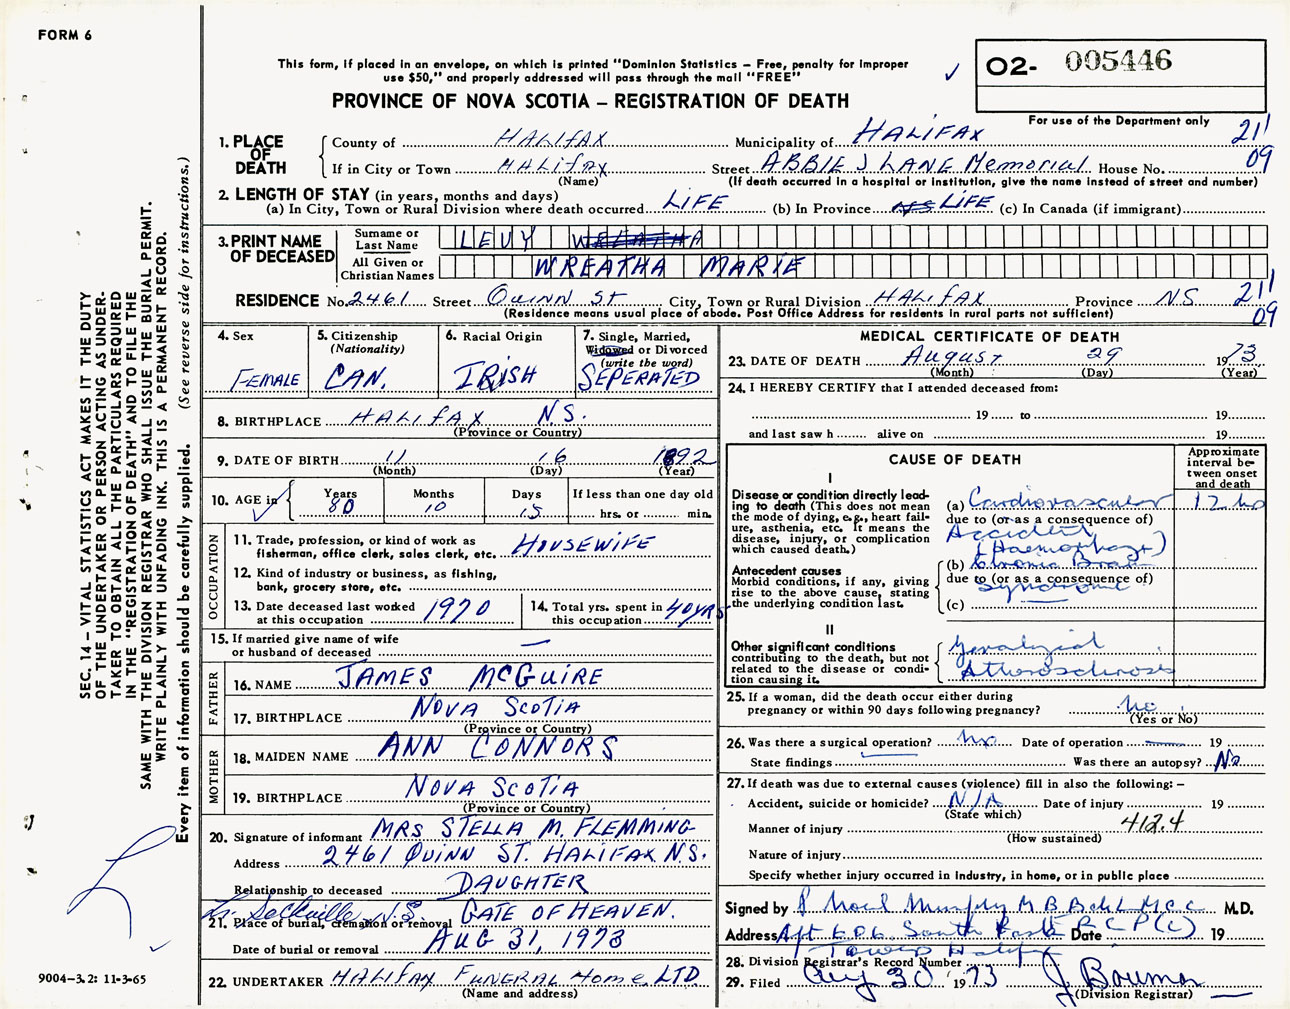 FORM 6
This form, if placed in an envelope, on which is printed "Dominion Statistics – Free, penalty for improper
use $50," and properly addressed will pass through the mail "FREE"
PROVINCE OF NOVA SCOTIA – REGISTRATION OF DEATH
✓ 02- 005446
For use of the Department only
211
09
1. PLACE OF DEATH
County of HALIFAX Municipality of HALIFAX
If in City or Town HALIFAX Street ABBIE J LANE Memorial House No.
(Name) (If death occurred in a hospital or institution, give the name instead of street and number)
2. LENGTH OF STAY (in years, months and days)
(a) In City, Town or Rural Division where death occurred LIFE (b) In Province LIFE (c) In Canada (if immigrant)
3. PRINT NAME OF DECEASED
Surname or Last Name LEVY WREATHA
All Given or Christian Names WREATHA MARIE
RESIDENCE No. 2461 Street QUINN ST City, Town or Rural Division HALIFAX Province N.S. 211
09
(Residence means usual place of abode. Post Office Address for residents in rural parts not sufficient)
4. Sex FEMALE
5. Citizenship (Nationality) CAN.
6. Racial Origin IRISH
7. Single, Married, Widowed or Divorced (write the word) SEPERATED
8. BIRTHPLACE HALIFAX N.S.
(Province or Country)
9. DATE OF BIRTH 11 16 1892
(Month) (Day) (Year)
10. AGE in Years 80 Months 10 Days 15 If less than one day old
hrs. or min.
OCCUPATION
11. Trade, profession, or kind of work as
fisherman, office clerk, sales clerk, etc. HOUSEWIFE
12. Kind of industry or business, as fishing,
bank, grocery store, etc.
13. Date deceased last worked
at this occupation 1970
14. Total yrs. spent in
this occupation 40 YRS
15. If married give name of wife
or husband of deceased —
FATHER
16. NAME JAMES McGUIRE
17. BIRTHPLACE NOVA SCOTIA
(Province or Country)
MOTHER
18. MAIDEN NAME ANN CONNORS
19. BIRTHPLACE NOVA SCOTIA
(Province or Country)
20. Signature of informant MRS STELLA M. FLEMMING
Address 2461 QUINN ST. HALIFAX N.S.
Relationship to deceased DAUGHTER
Sackville N.S. GATE OF HEAVEN.
21. Place of burial, cremation or removal
Date of burial or removal AUG 31, 1973
22. UNDERTAKER HALIFAX FUNERAL Home LTD
(Name and address)
MEDICAL CERTIFICATE OF DEATH
23. DATE OF DEATH August 29 1973
(Month) (Day) (Year)
24. I HEREBY CERTIFY that I attended deceased from:
19 to 19
and last saw h alive on 19
CAUSE OF DEATH
Approximate interval between onset and death
I
Disease or condition directly leading to death (This does not mean the mode of dying, e.g., heart failure, asthenia, etc. It means the disease, injury, or complication which caused death.)
(a) Cardiovascular 12 hrs
due to (or as a consequence of)
Accident
(Haemorrhage)
Antecedent causes
Morbid conditions, if any, giving rise to the above cause, stating the underlying condition last.
(b) Chronic Brain
due to (or as a consequence of)
Syndrome
(c)
II
Other significant conditions
contributing to the death, but not related to the disease or condition causing it.
Atherosclerosis
25. If a woman, did the death occur either during
pregnancy or within 90 days following pregnancy? No
(Yes or No)
26. Was there a surgical operation? No Date of operation — 19
State findings Was there an autopsy? No
27. If death was due to external causes (violence) fill in also the following: –
Accident, suicide or homicide? N/A Date of injury 19
(State which)
Manner of injury 412.4
(How sustained)
Nature of injury
Specify whether injury occurred in industry, in home, or in public place
Signed by Murphy M.D.
Address Apt 606 South Date 19
28. Division Registrar's Record Number
29. Filed Aug 30 1973
(Division Registrar)
SEC. 14 – VITAL STATISTICS ACT MAKES IT THE DUTY
OF THE UNDERTAKER OR PERSON ACTING AS UNDER-
TAKER TO OBTAIN ALL THE PARTICULARS REQUIRED
IN THE "REGISTRATION OF DEATH" AND TO FILE THE
SAME WITH THE DIVISION REGISTRAR WHO SHALL ISSUE THE BURIAL PERMIT.
WRITE PLAINLY WITH UNFADING INK. THIS IS A PERMANENT RECORD.
Every item of information should be carefully supplied. (See reverse side for instructions.)
9004-3.2: 11-3-65